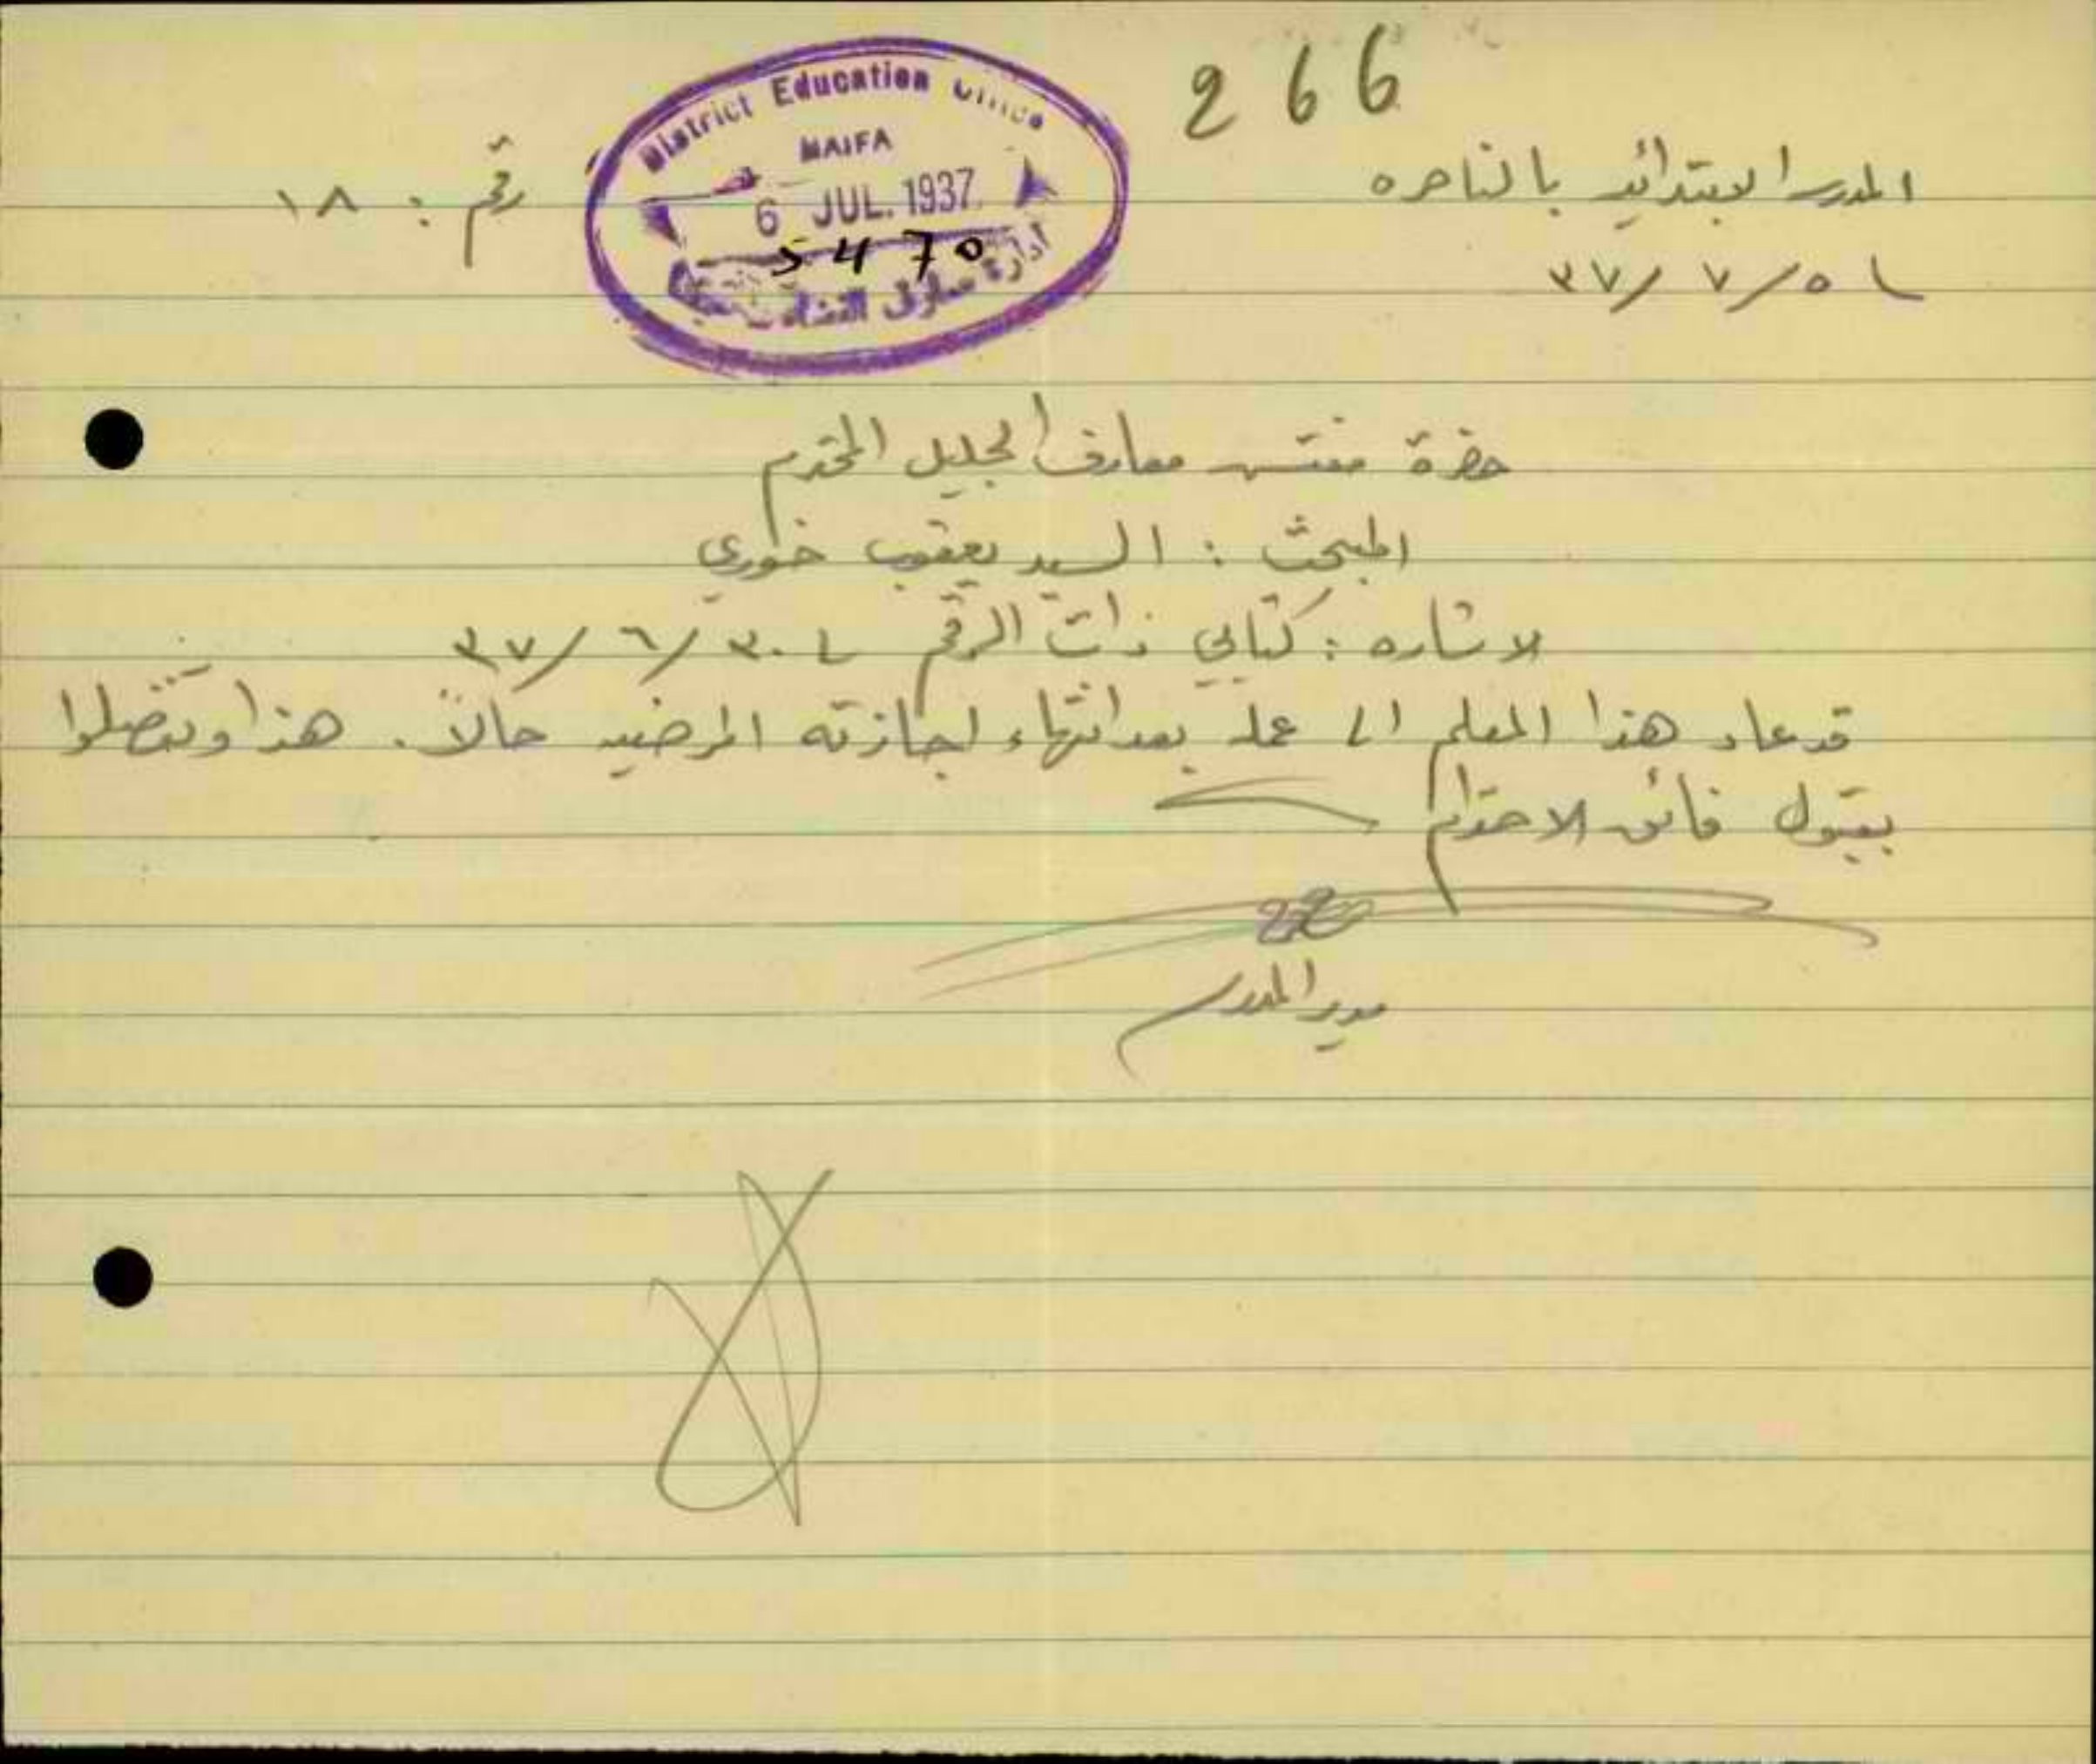 266
District Education Office
HAIFA
6 JUL. 1937
5470
ادارة معارف القضاء
رقم : ١٨
المدرسة الابتدائية بالناصره
٣٧/٧/٥
حضرة مفتش معارف الجليل المحترم
المبحث : السيد يعقوب خوري
الاشاره : كتابي ذات الرقم ٣٧/٦/٣٠
قد عاد هذا المعلم الى عمله بعد انتهاء اجازته المرضيه حالاً. هذا وتفضلوا
بقبول فائق الاحترام
مدير المدرسة